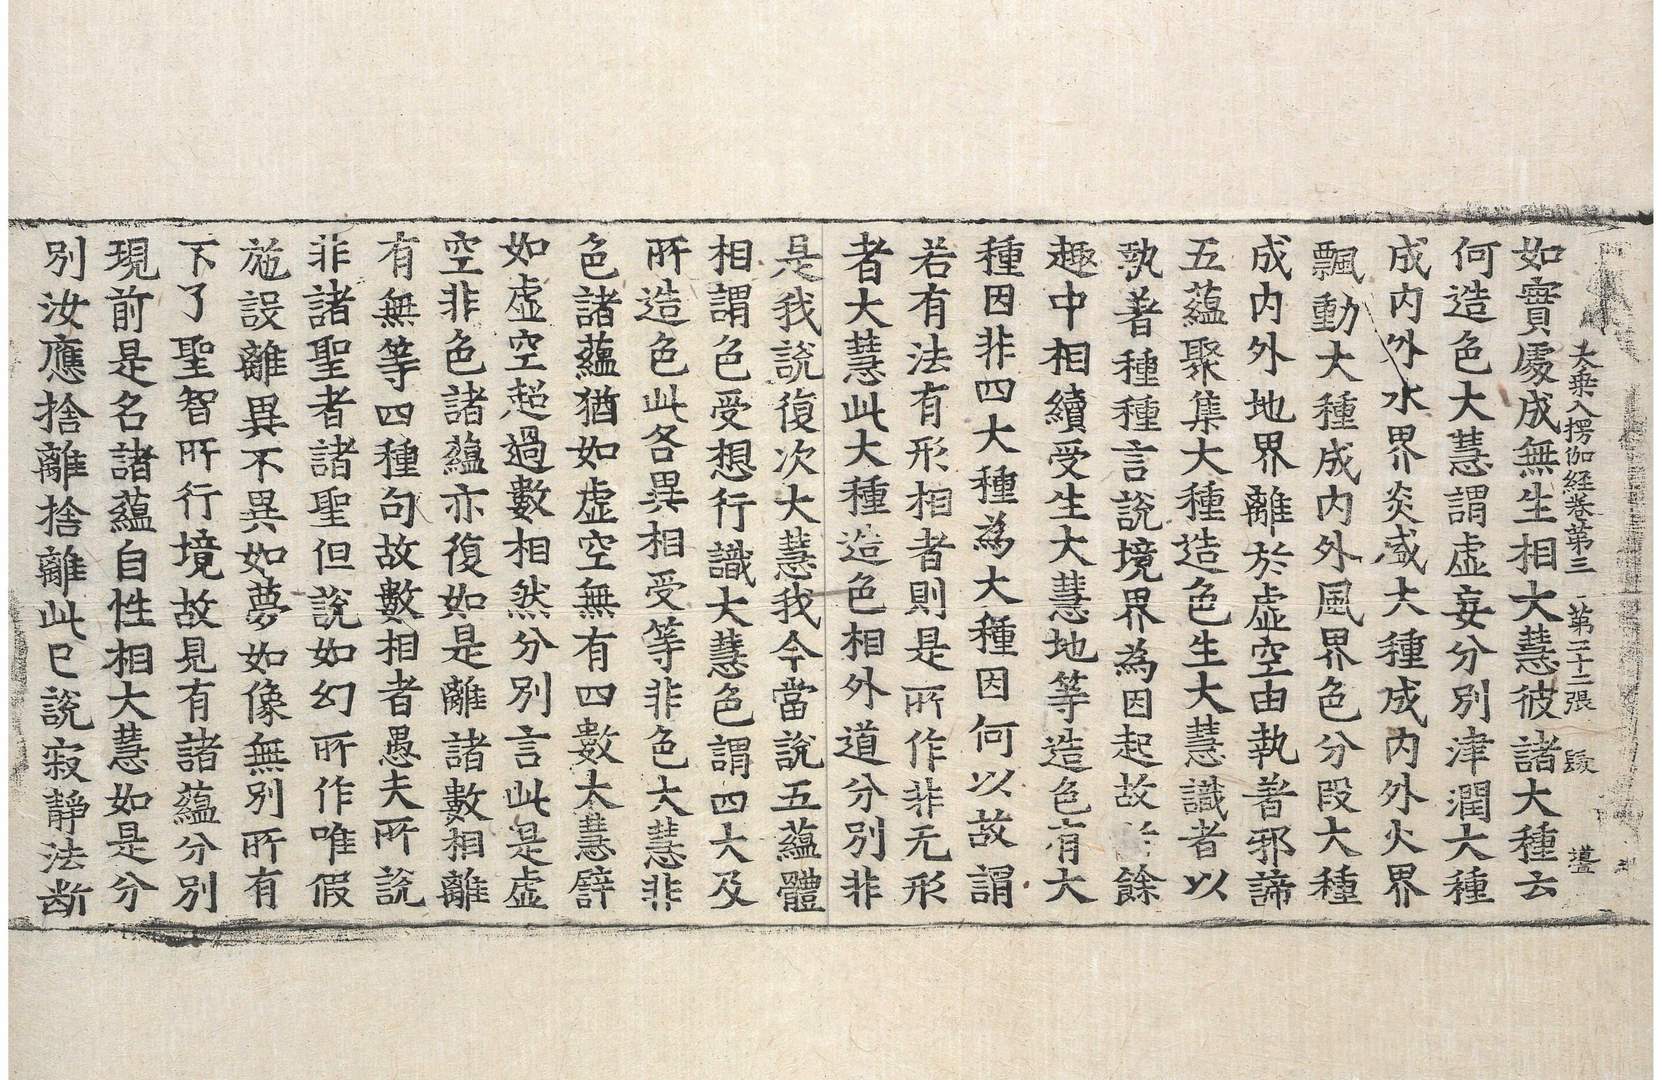 大乗入楞伽経巻第三 第二十二張
如實處成無生相大慧彼諸大種云
何造色大慧謂虛妄分別津潤大種
成内外水界炎盛大種成内外火界
飄動大種成内外風界色分段大種
成内外地界離於虛空由執著邪諦
五蘊聚集大種造色生大慧識者以
執著種種言說境界為因起故於餘
趣中相續受生大慧地等造色有大
種因非四大種為大種因何以故謂
若有法有形相者則是所作非无形
者大慧此大種造色相外道分別非
是我說復次大慧我今當說五蘊體
相謂色受想行識大慧色謂四大及
所造色此各異相受等非色大慧非
色諸蘊猶如虛空無有四數大慧譬
如虛空超過數相然分別言此是虛
空非色諸蘊亦復如是離諸數相離
有無等四種句故數相者愚夫所說
非諸聖者諸聖但說如幻所作唯假
施設離異不異如夢如像無別所有
不了聖智所行境故見有諸蘊分別
現前是名諸蘊自性相大慧如是分
別汝應捨離捨離此已說寂靜法斷